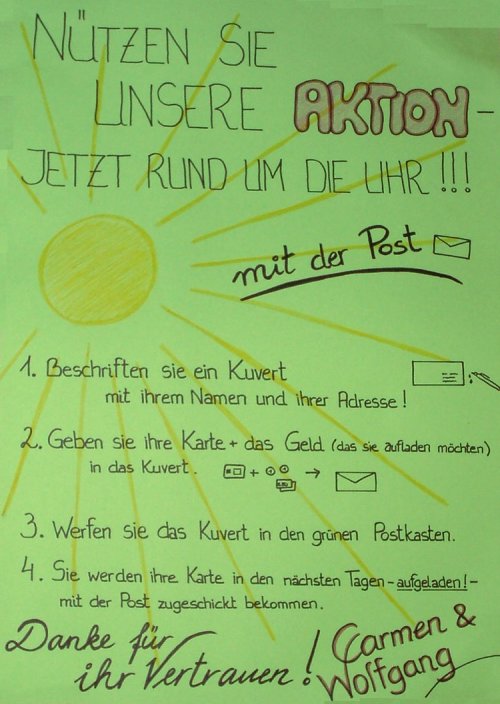 NÜTZEN SIE
UNSERE AKTION -
JETZT RUND UM DIE UHR !!!
mit der Post
1. Beschriften sie ein Kuvert
mit ihrem Namen und ihrer Adresse!
2. Geben sie ihre Karte + das Geld (das sie aufladen möchten)
in das Kuvert. + →
3. Werfen sie das Kuvert in den grünen Postkasten.
4. Sie werden ihre Karte in den nächsten Tagen - aufgeladen! -
mit der Post zugeschickt bekommen.
Danke für
ihr Vertrauen !
Carmen &
Wolfgang